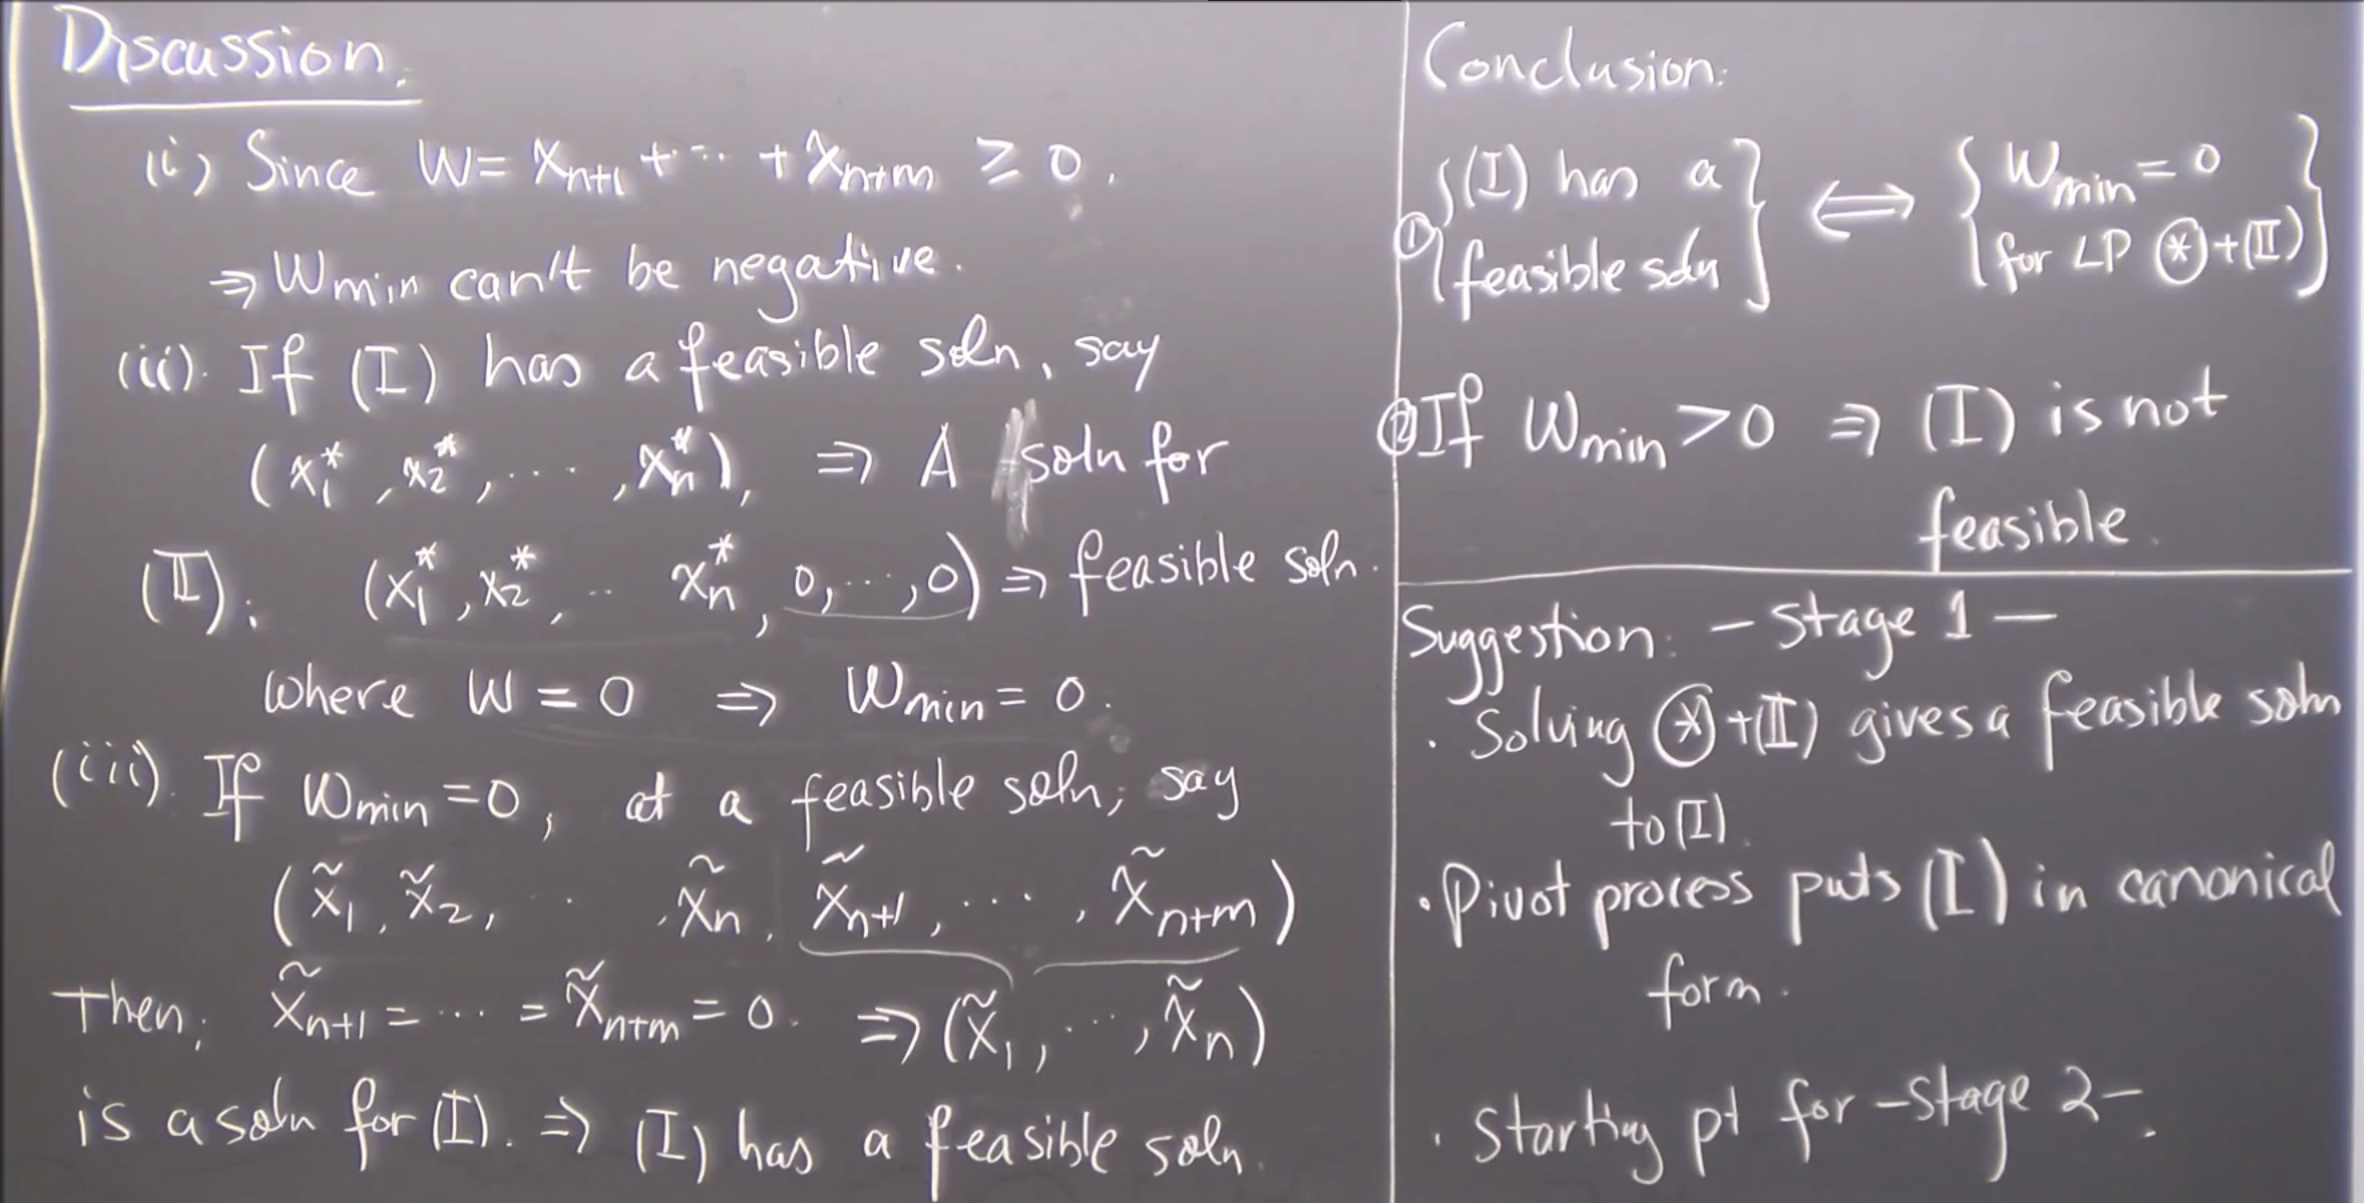 Discussion.
(i) Since W = x_{n+1} + ... + x_{n+m} ≥ 0.
⇒ W_min can't be negative.
(ii). If (I) has a feasible soln, say
(x_1^*, x_2^*, ..., x_n^*), ⇒ A soln for
(II). (x_1^*, x_2^*, .. x_n^*, 0, ..., 0) ⇒ feasible soln.
where W = 0 ⇒ W_min = 0.
(iii). If W_min = 0, at a feasible soln, say
(x̃_1, x̃_2, ..., x̃_n, x̃_{n+1}, ..., x̃_{n+m})
Then, x̃_{n+1} = ... = x̃_{n+m} = 0. ⇒ (x̃_1, ..., x̃_n)
is a soln for (I). ⇒ (I) has a feasible soln.
Conclusion:
① {(I) has a feasible soln} ⇔ {W_min = 0 for LP ⊛+(II)}
② If W_min > 0 ⇒ (I) is not
feasible.
Suggestion: - Stage 1 -
· Solving ⊛+(II) gives a feasible soln
to (I).
· Pivot process puts (I) in canonical
form.
· Starting pt for - Stage 2 -.